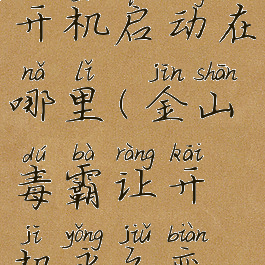 开机启动在
nǎ lǐ jīn shān
哪里(金山
dú bà ràng kāi
毒霸让开
jī yǒng jiǔ biàn